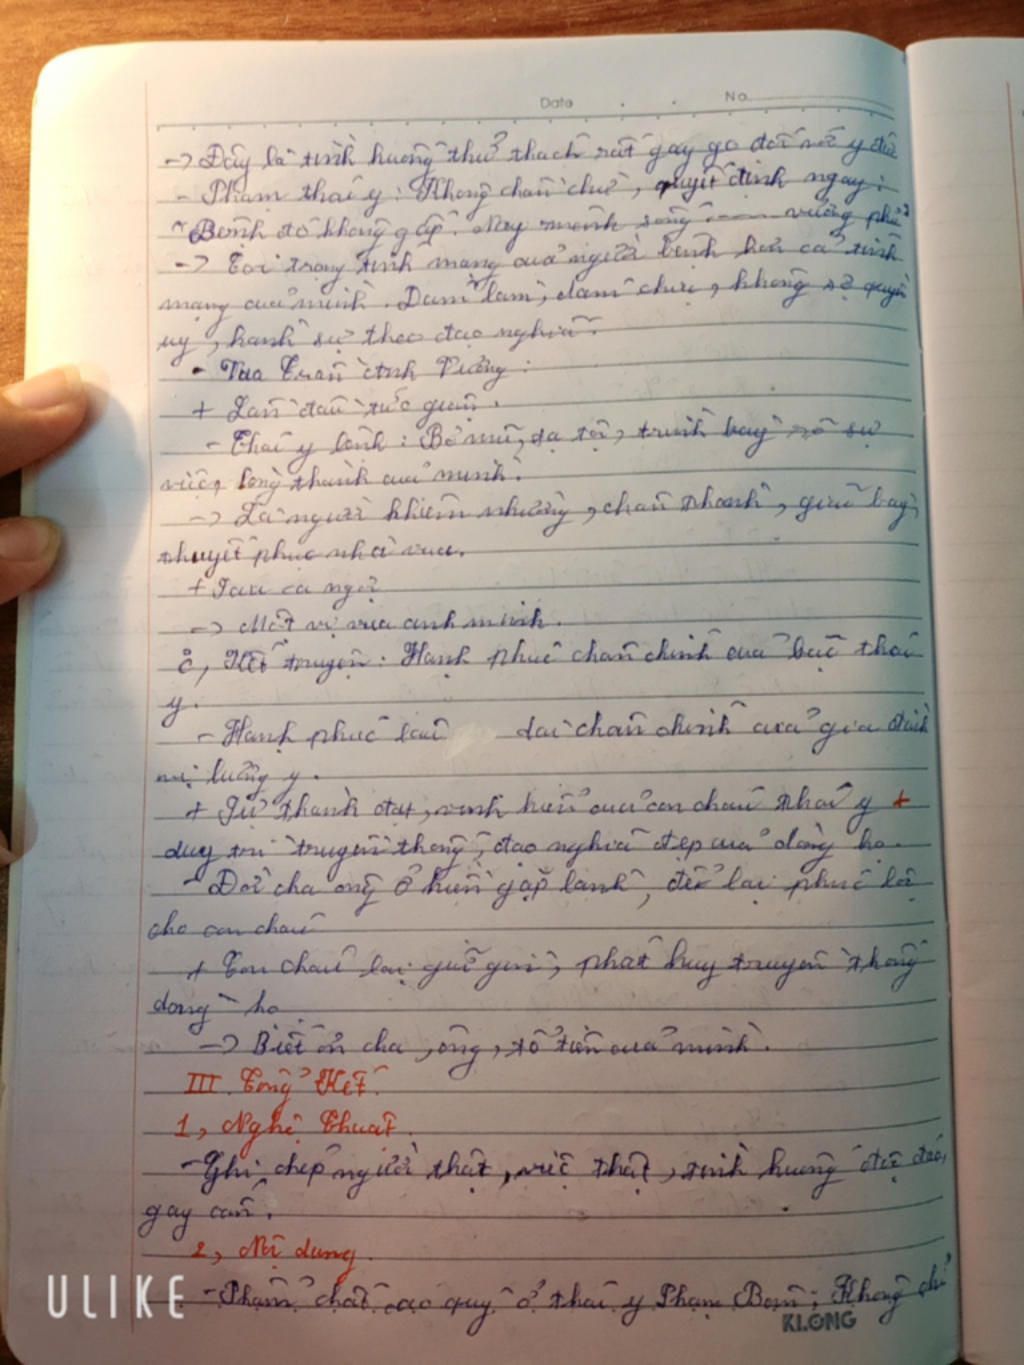 Date No
-> Đây là tình huống thử thách rất gay go đối với y đức
- Phạm thái y: Không chần chừ, quyết định ngay:
"Bệnh đó không gấp. Nay mệnh sống ---- vương phủ"
-> Coi trọng tính mạng của người bệnh hơn cả tính
mạng của mình. Dám làm, dám chịu, không sợ quyền
uy, hành sự theo đạo nghĩa.
- Trần Anh Vương:
+ Lần đầu tức giận.
- Thái y lệnh: Bỏ mũ, tạ tội, trình bày rõ sự
việc, lòng thành của mình.
-> Là người khiêm nhường, chân thành, giãi bày,
thuyết phục nhà vua.
+ Sau ca ngợi
-> Một vị vua anh minh.
c, Kết truyện: Hạnh phúc chân chính của bậc thái
y.
- Hạnh phúc lâu dài chân chính của gia đình
vị lương y.
+ Sự thành đạt, vinh hiển của con cháu thái y +
duy trì truyền thống, đạo nghĩa đẹp của dòng họ.
- Đời cha ông ở hiền gặp lành, để lại phúc lộ
cho con cháu
+ Con cháu lại giữ gìn, phát huy truyền thống
dòng họ
-> Biết ơn cha, ông, tổ tiên của mình.
III. Tổng Kết.
1, Nghệ Thuật.
- Ghi chép người thật, việc thật, tình huống độc đáo,
gay cấn.
2, Nội dung.
- Phẩm chất cao quý ở thái y Phạm Bân; Không chỉ
KLONG
ULIKE